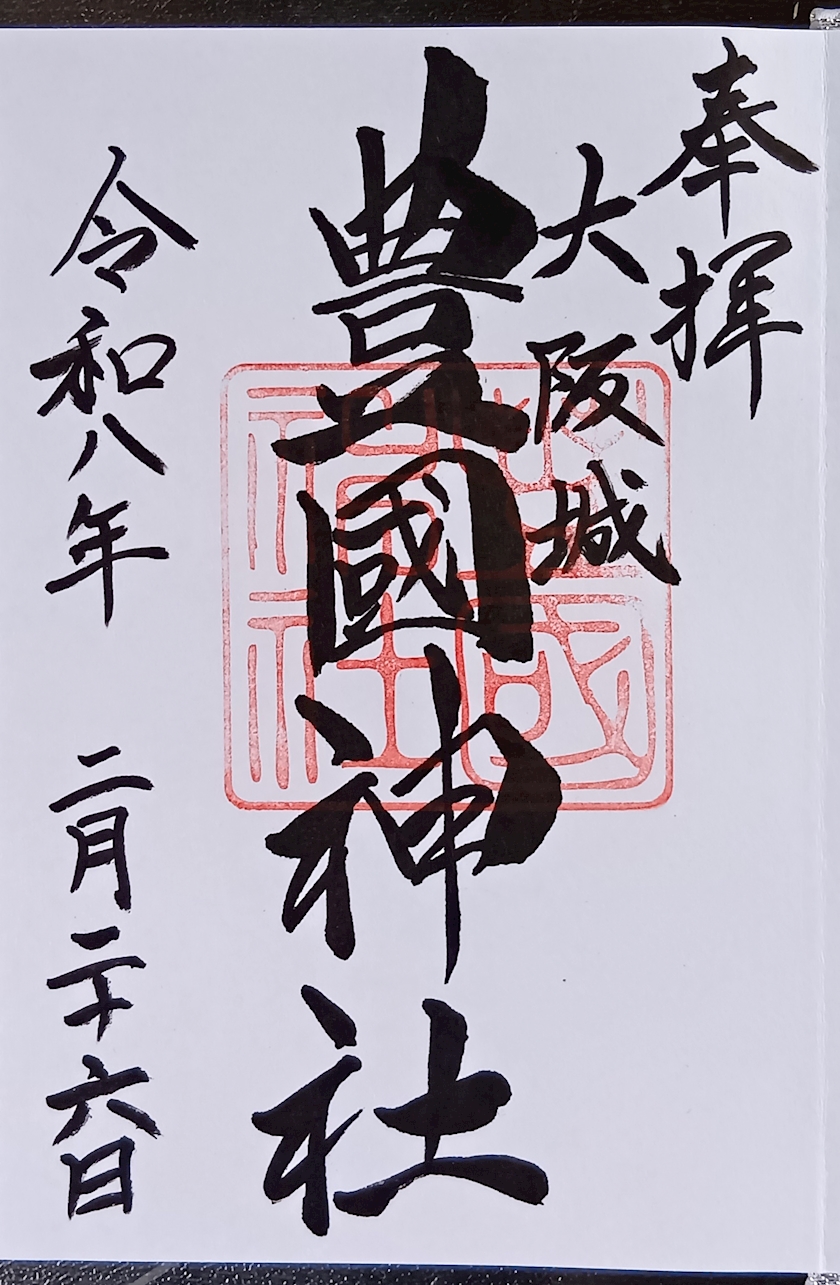 奉拝
大阪城
豊國神社
令和八年 二月二十六日
豊國神社